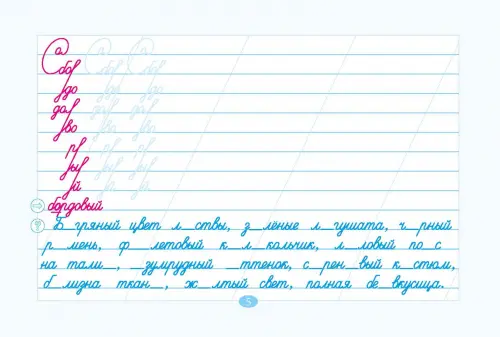 а
бо
до
до
во
р
ы
й
бордовый
Б_гряный цвет л_ствы, з_леные л_гушата, ч_рный
р_мень, ф_летовый к_л_кольчик, л_ловый по_с
на тали_, _зумрудный _ттенок, с_рен_вый к_стюм,
б_лизна ткан_, ж_лтый свет, полная бе_вкусица.
5